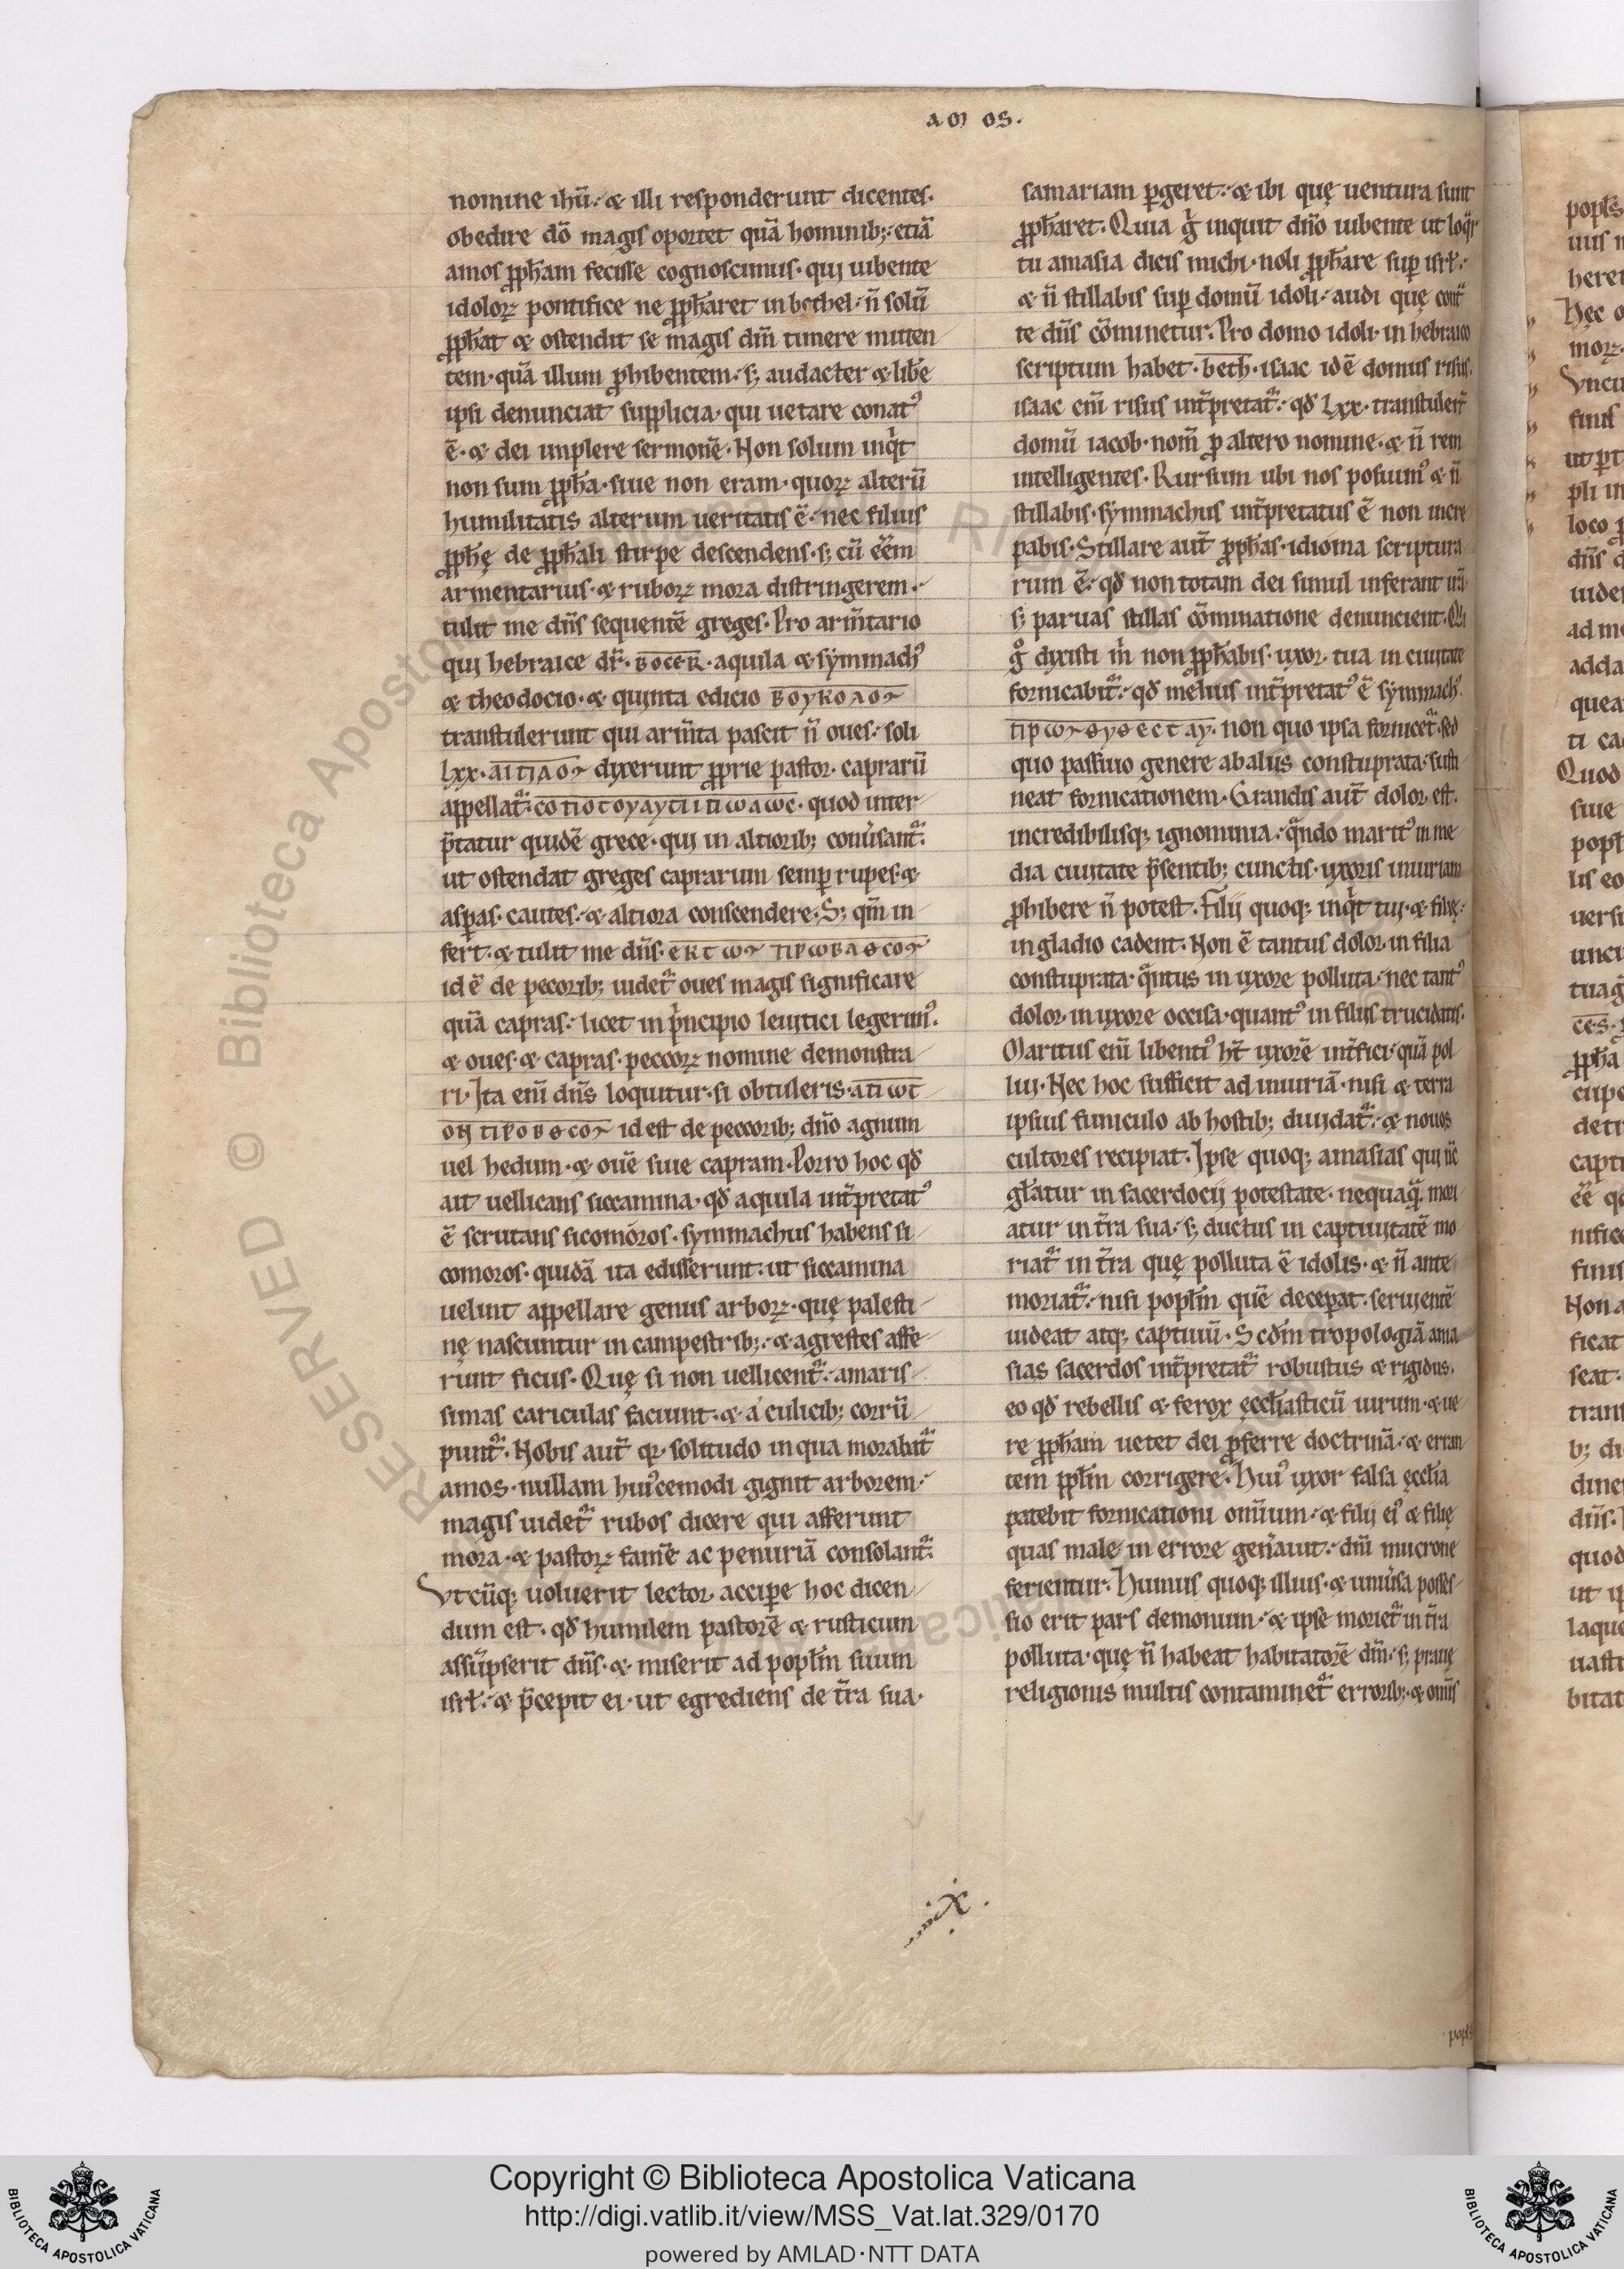 amos.
nomine ihū. & illi responderunt dicentes.
obedire dō magis oportet quā hominib;. etiā
amos ꝓph̄am fecisse cognoscimus. qui iubente
idoloꝝ pontifice ne ꝓph̄aret in bethel. n̄ solū
ꝓph̄at & ostendit se magis dn̄m timere mitten
tem. quā illum ꝓhibentem. s; audacter & libe
ipsi denunciat supplicia. qui uetare conatꝰ
ē. & dei implere sermonē. Non solum inqͥt
non sum ꝓph̄a. siue non eram. quoꝝ alterū
humilitatis alterum ueritatis ē. nec filius
ꝓph̄ę de ꝓph̄ali stirpe descendens. s; cū eēm
armentarius. & ruboꝝ mora distringerem.
tulit me dn̄s sequentē greges. Pro arm̄tario
qui hebraice dr̄. BOCER. aquila & symmachꝰ
& theodocio. & quinta edicio ΒΟΥΚΟΛΟΝ
transtulerunt qui arm̄ta pascit n̄ oues. soli
lxx. ΑΙΠΛΟΝ dyxerunt ꝓprie pastor. caprarū
appellat̄. quod inter
p̄tatur quidē grece. qui in altiorib; conu̓sant̄.
ut ostendat greges caprarum semꝑ rupes. &
asꝑas. cautes. & altiora conscendere. S; qm̄ in
fert. & tulit me dn̄s. ΕΚ ΤΩΝ ΠΡΩΒΑΘΩΝ
id ē de pecorib; uidet̄ oues magis significare
quā capras. licet in pͥncipio leuitici legerimꝰ.
& oues. & capras. peccoꝝ nomine demonstra
ri. Ita enī dn̄s loquitur. si obtuleris. ΑΠΩΤ
ΟΝ ΠΡΟΒΘΩΝ id est de peccorib; dn̄o agnum
uel hedum. & ouē siue capram. Porro hoc qd̄
ait uellicans siccamina. qd̄ aquila int̄pretatꝰ
ē scrutans sicomóros. symmachus habens si
comoros. quidā ita edisserunt. ut siccamina
uelint appellare genus arboꝝ. quę palesti
nę nascuntur in campestrib;. & agrestes affe
runt ficus. Quę si non uellicent̄. amaris
simas cariculas faciunt. & a culicib; corrū
punt̄. Nobis aut̄ qꝛ solitudo in qua morabat̄
amos. nullam huiꝰcemodi gignit arborem.
magis uidet̄ rubos dicere qui afferunt
mora. & pastoꝝ famē ac penuriā consolant̄.
Vtcūq; uoluerit lector accipere hoc dicen
dum est. qd̄ humilem pastorē & rusticum
assūpserit dn̄s. & miserit ad popl̄m suum
isrl̄. & p̄cepit ei. ut egrediens de t̄ra sua.
samariam ꝑgeret. & ibi quę uentura sunt
ꝓph̄aret. Quia gͥ inquit dn̄o iubente ut loqͣr
tu amasia dicis michi. noli ꝓph̄are suꝑ isrl̄.
& n̄ stillabis suꝑ domū idoli. audi quę contͣ
te dn̄s cōminetur. Pro domo idoli. in hebraico
scriptum habet. beth. isaac idē domus risus.
isaac enī risus int̄pretat̄. qd̄ lxx. transtulert̄
domū iacob. nom̄ ꝓ altero nomine. & n̄ rem
intelligentes. Rursum ubi nos posuimꝰ & n̄
stillabis. symmachus int̄pretatus ē non incre
pabis. Stillare aut̄ ꝓph̄as. idioma scriptura
rum ē. qd̄ non totam dei simul inferant irā.
s; paruas stillas cōminatione denuncient. Qͥ
gͦ dyxisti m̄ non ꝓph̄abis. uxor. tua in ciuitate
fornicabit̄. qd̄ melius int̄pretatꝰ ē symmachꝰ.
non quo ipsa fornicet̄. sed
quo passiuo genere ab aliis constuprata. susti
neat fornicationem. Grandis aut̄ dolor est.
incredibilisq; ignominia. qͣndo maritꝰ in me
dia ciuitate p̄sentib; cunctis. uxoris iniuriam
ꝓhibere n̄ potest. Filii quoq; inqͥt tui. & filię.
in gladio cadent. Non ē tantus dolor in filia
constuprata. qͣntus in uxore polluta. nec tantꝰ
dolor in uxore occisa. quantꝰ in filiis trucidatis.
Maritus enī libentiꝰ ht̄ uxorē int̄fici. quā pol
lui. Nec hoc sufficit ad iniuriā. nisi & terra
ipsius funiculo ab hostib; diuidat̄. & nouos
cultores recipiat. Ipse quoq; amasias qui nc̄
gl̄atur in sacerdocii potestate. nequaqͣ. mori
atur in t̄ra sua. s; ductus in captiuitatē mo
riat̄ in t̄ra quę polluta ē idolis. & n̄ ante
moriat̄. nisi popl̄m quē deceꝑat. seruientē
uideat atq; captiuū. Scd̄m tropologiā ama
sias sacerdos int̄pretat̄ robustus & rigidus.
eo qd̄ rebellis & ferox ęccl̄iasticū uirum. & ue
re ꝓph̄am uetet dei ꝓferre doctrinā. & erran
tem ppl̄m corrigere. Huiꝰ uxor falsa ęccl̄ia
patebit fornicationi omīum. & filii eiꝰ & filię
quas male in errore gen̄auit. dn̄i mucrone
ferientur. Humus quoq; illius. & uniu̓sa posses
sio erit pars demonum. & ipse moriet̄ in t̄ra
polluta. quę n̄ habeat habitatorē dn̄m. s; prauę
religionis multis contaminet̄ errorib;. & om̄is
ix.
popl̄s
Copyright © Biblioteca Apostolica Vaticana
http://digi.vatlib.it/view/MSS_Vat.lat.329/0170
powered by AMLAD·NTT DATA
BIBLIOTECA APOSTOLICA VATICANA
BIBLIOTECA APOSTOLICA VATICANA